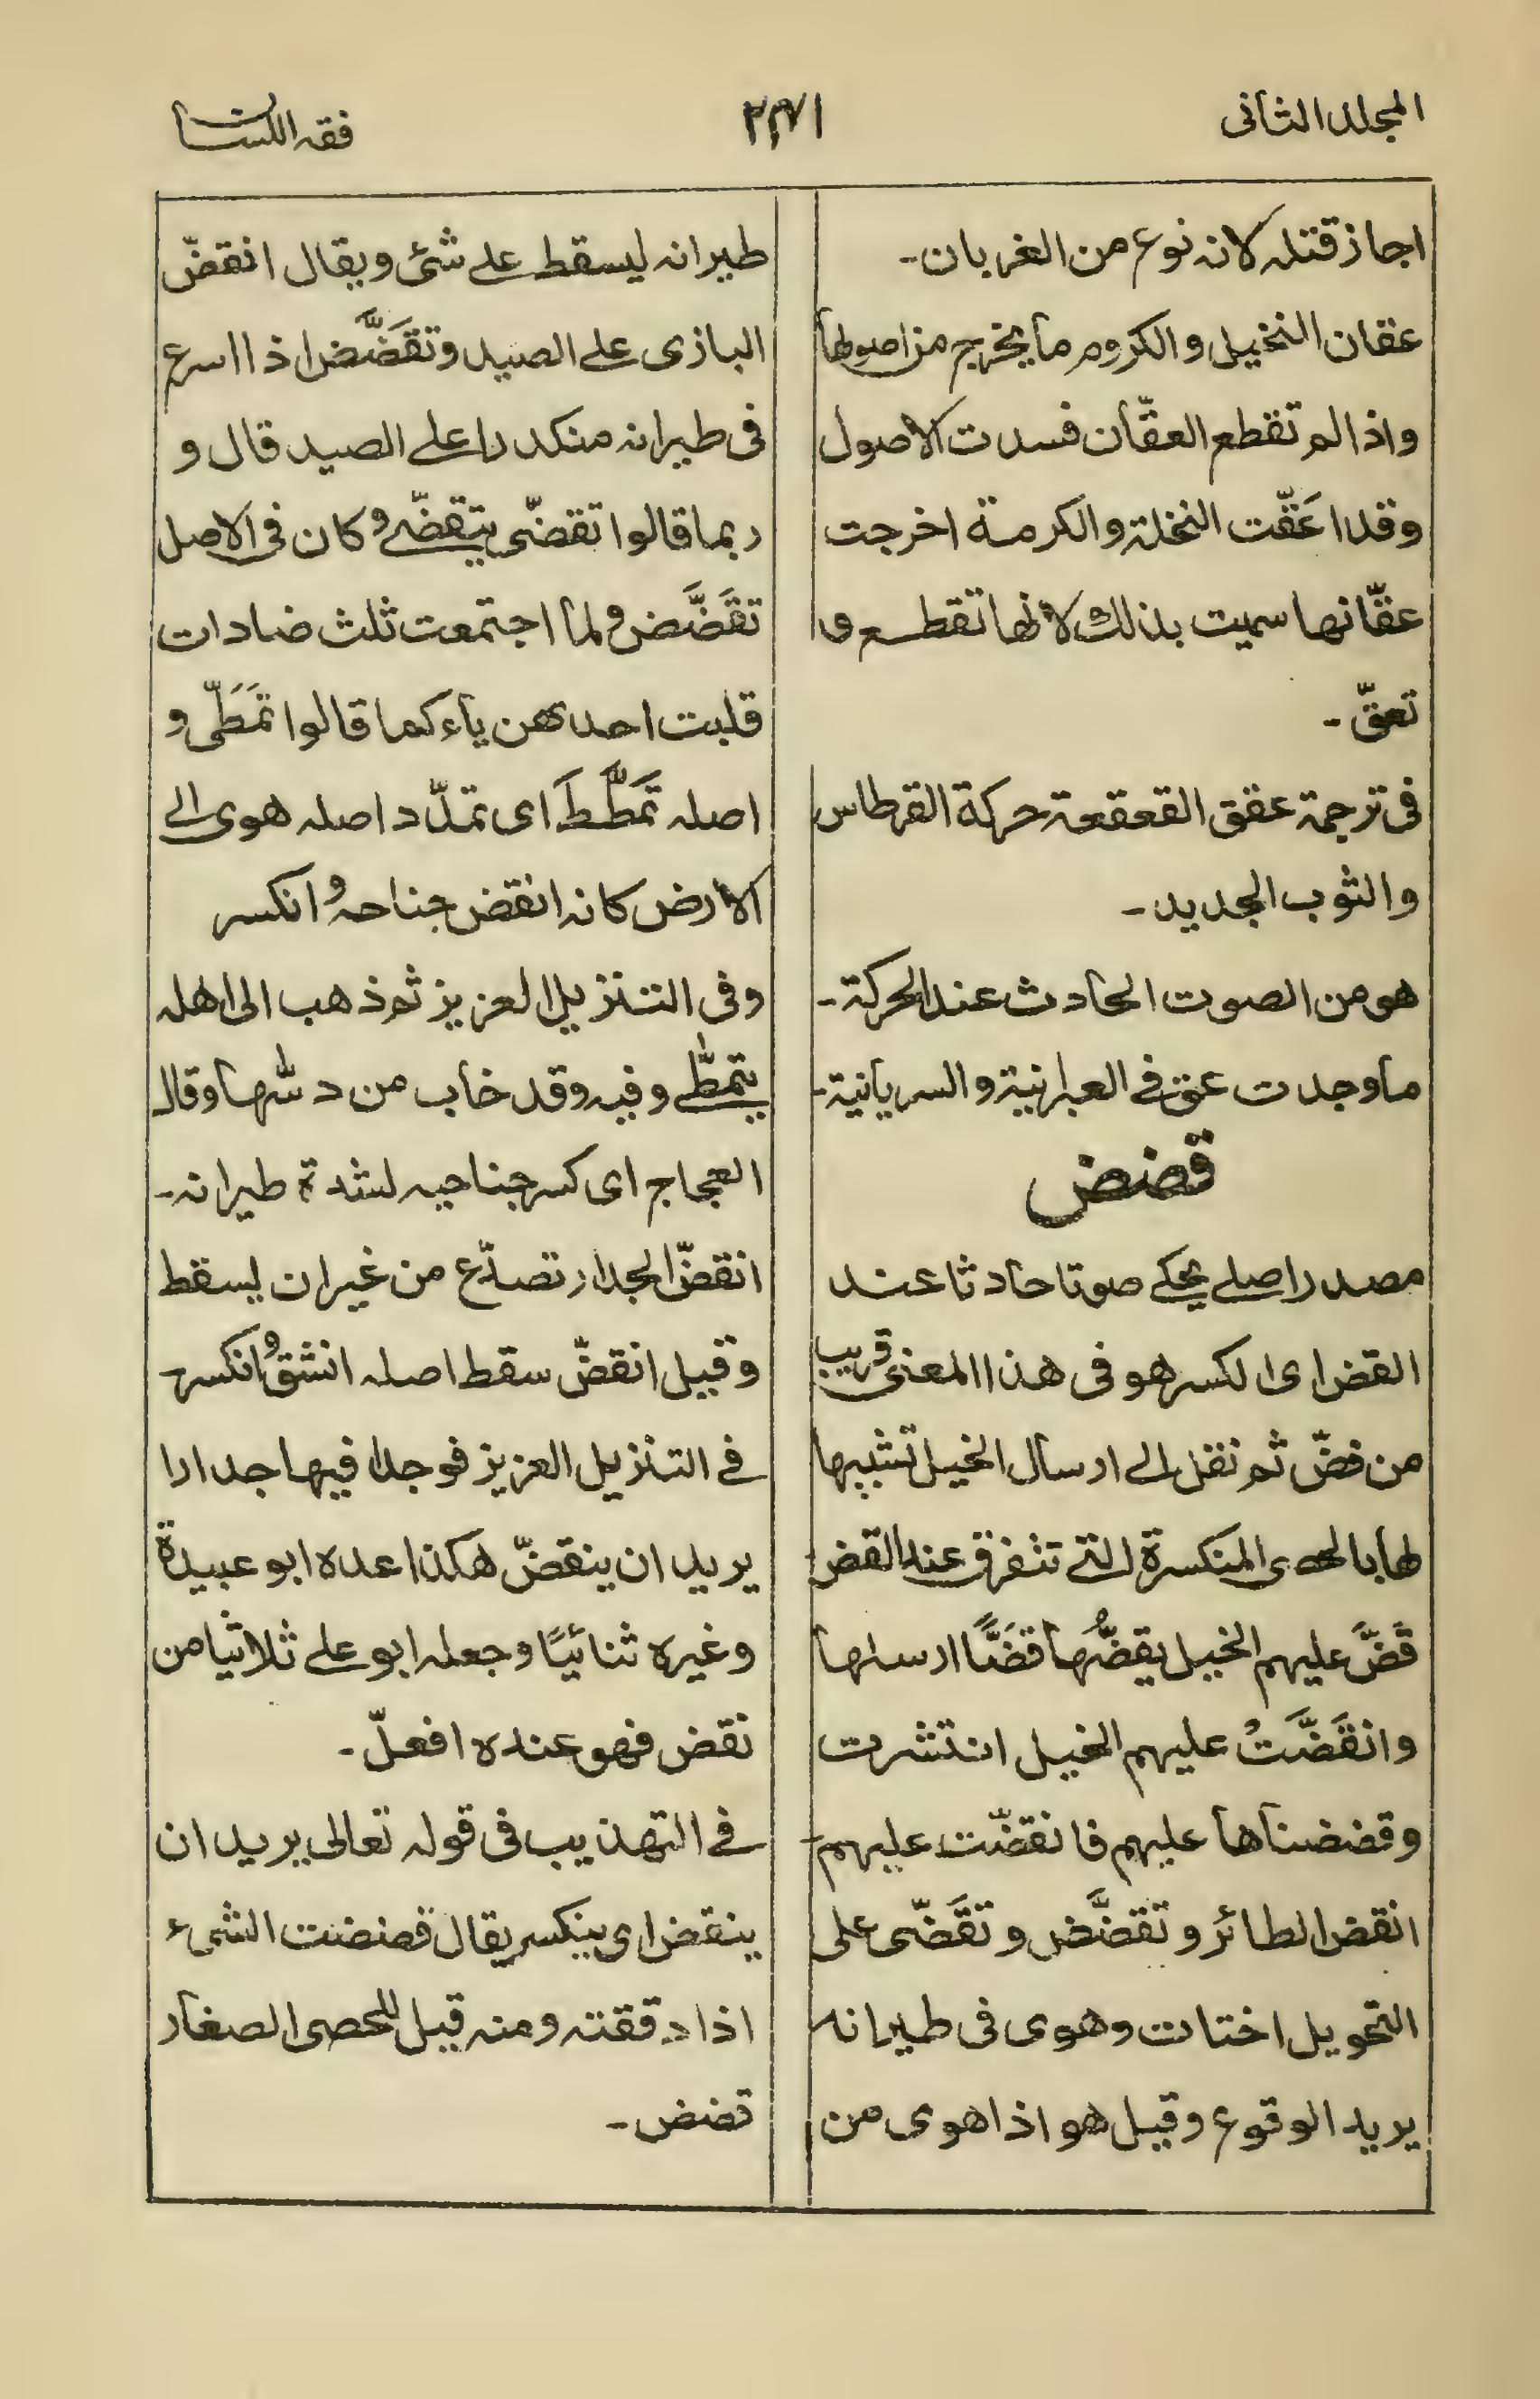 المجلد الثانى
فقہ اللسان
اجاز قتلہ لانہ نوع من الغربان۔
عقان النخیل و الکروم ما یخرج من اصولها
واذا لم تقطع العقّان فسدت الاصول
وقد اعَقّت النخلۃ والکرمۃ اخرجت
عقّانها سمیت بذلك لانها تقطع و
تعقّ۔
فی ترجمۃ عقق القعقعۃ حرکة القرطاس
والثوب الجدید۔
هو من الصوت الحادث عند الحرکۃ۔
ما وجدت عق فے العبرانیۃ و السریانیۃ۔
قضض
مصدر اصلے یحکے صوتا حادثا عند
القض ای الکسر هو فی هذا المعنی قریب
من فضّ ثم نقل الے ارسال الخیل تشبیها
لها بالحصی المنکسرة التے تتفرق عند القض
قَضَّ علیهم الخیل یقضُّها قضًّا ارسلها
وانقَضَّتْ علیهم الخیل انتشرت
وقضضناها علیهم فانقضّت علیهم۔
انقض الطائر و تقضَّض و تقَضّی علی
التحویل اختات وهوی فی طیرانه
یرید الوقوع وقیل هو اذا هوی من
طیرانہ لیسقط علے شئ ویقال انقضّ
البازی علے الصید وتقَضَّض اذا اسرع
فی طیرانہ منکدرا علے الصید قال و
ربما قالوا تقضّی یتقضّے و کان فی الاصل
تقَضَّض و لما اجتمعت ثلث ضادات
قلبت احدهن یاء کما قالوا تَمَطّی و
اصلہ تَمَطَّطَ ای تمدّد اصلہ هوی الے
الارض کانہ انقض جناحہ و انکسر
وفی التنزیل العزیز ثم ذهب الی اهلہ
یتمطّے وفیہ وقد خاب من دسّٰها وقال
العجاج ای کسر جناحیہ لشدۃ طیرانہ۔
انقضّ الجدار تصدّع من غیر ان یسقط
وقیل انقضّ سقط اصلہ انشق و انکسر
فے التنزیل العزیز فوجدا فیها جدارا
یرید ان ینقضّ هکذا عده ابو عبیدة
وغیره ثنائیًا وجعلہ ابو علے ثلاثیا من
نقض فهو عنده افعلّ۔
فے التهذیب فی قولہ تعالی یرید ان
ینقض ای ینکسر یقال قضضت الشیء
اذا دققتہ ومنہ قیل للحصی الصغار
قضض۔